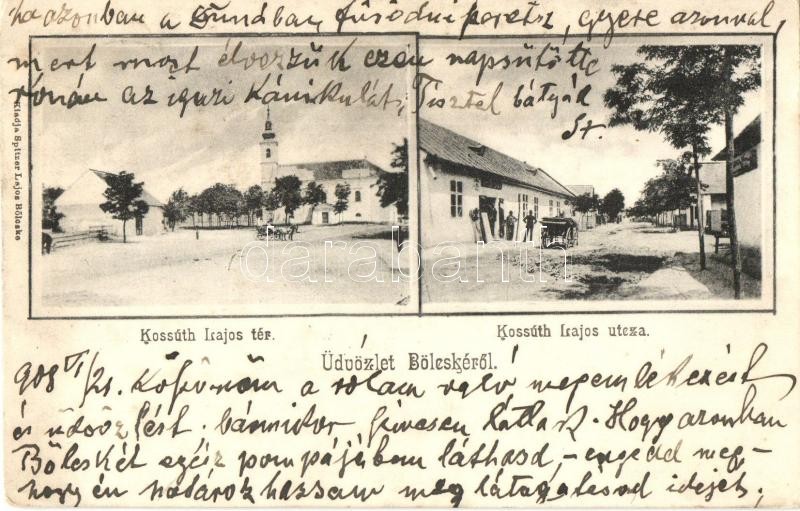 ha azonban a Dunában fürödni persz, gyere azonnal,
mert most élvezzük ezen napsütötte
rónán az igazi kánikulát, Tisztel bátyád
St.
Kiadja Spitzer Lajos Bölcske
darabanth
Kossúth Lajos tér.
Kossúth Lajos utcza.
Üdvözlet Bölcskéről.
908 VI/21. Köszönöm a rólam való megemlékezést
és üdvözlést. bármikor szivesen látlak. Hogy azonban
Bölcskét egész pompájában láthasd, - engedd meg -
hogy én határozhassam meg látogatásod idejét;